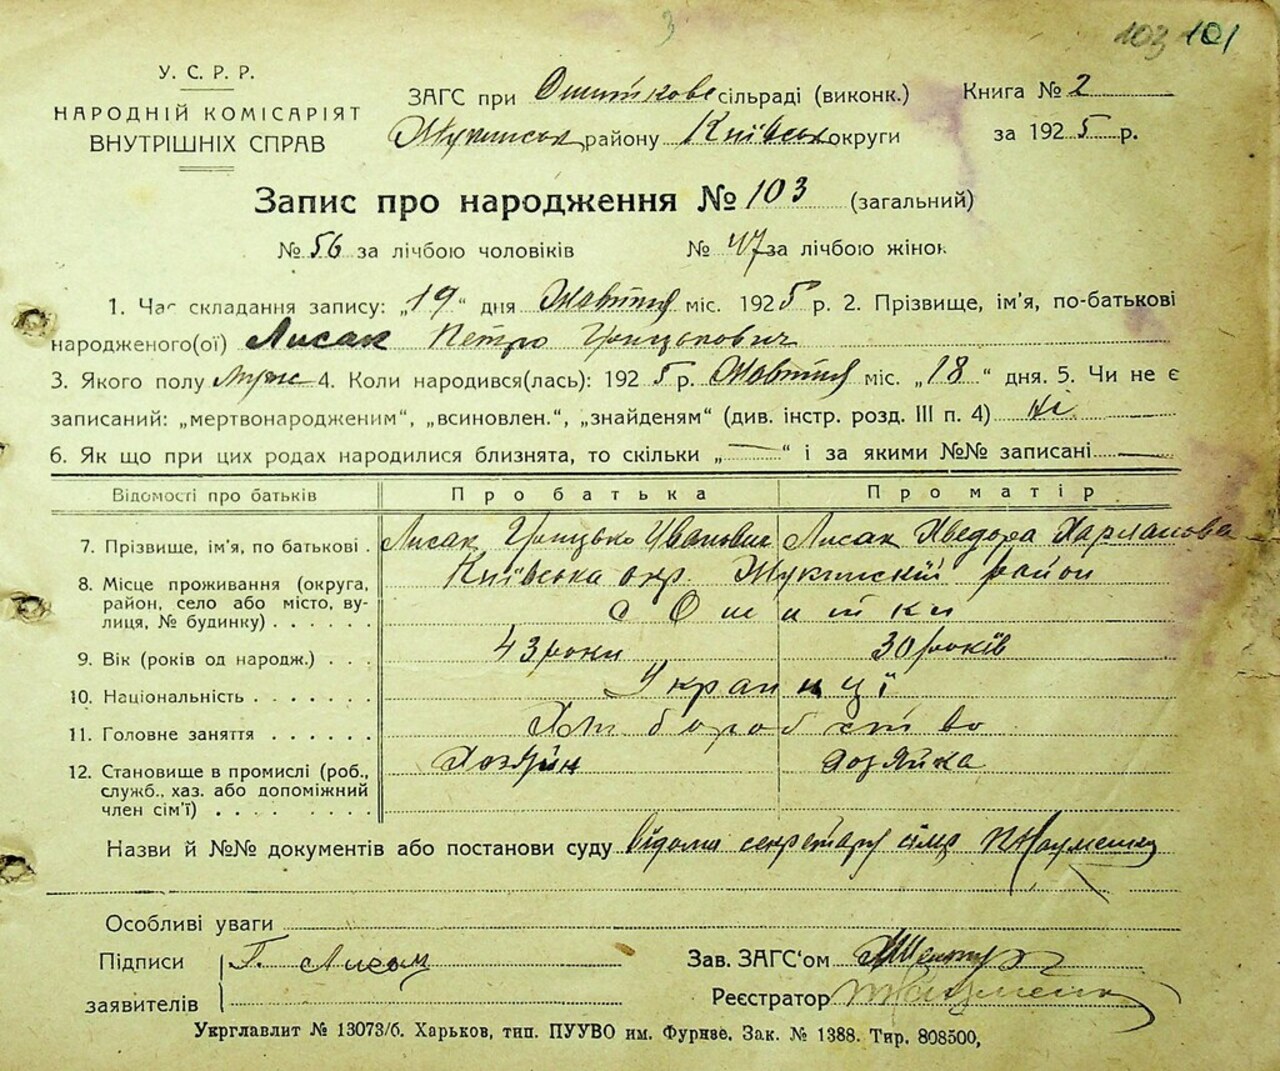 3
103 101
У. С. Р. Р.
НАРОДНІЙ КОМІСАРІЯТ
ВНУТРІШНІХ СПРАВ
ЗАГС при сільраді (виконк.) Книга № 2
району Київськ округи за 1925 р.
Запис про народження № 103 (загальний)
№ 56 за лічбою чоловіків № 47 за лічбою жінок
1. Час складання запису: „19“ дня Жовтня міс. 1925 р. 2. Прізвище, ім'я, по-батькові
народженого(ої) Лисак Петро Грицькович
3. Якого полу муж 4. Коли народився(лась): 1925 р. Жовтня міс. „18“ дня. 5. Чи не є
записаний: „мертвонародженим“, „всиновлен.“, „знайденям“ (див. інстр. розд. III п. 4) Ні
6. Як що при цих родах народилися близнята, то скільки „—“ і за якими №№ записані —
Відомості про батьків Про батька Про матір
7. Прізвище, ім'я, по батькові . Лисак Грицько Иванович Лисак Хведора Харланова
8. Місце проживання (округа, Київська окр. Жукинский район
район, село або місто, ву- с Ошитки
лиця, № будинку) . . . . . .
9. Вік (років од народж.) . . . 43 роки 30 років
10. Національність . . . . . . . Украинці
11. Головне заняття . . . . . . Хліборобство
12. Становище в промислі (роб., Хозяїн Хозяйка
служб., хаз. або допоміжний
член сім'ї) . . . . . . . .
Назви й №№ документів або постанови суду відома секретару Науменку
Особливі уваги
Підписи Г. Лисак Зав. ЗАГС'ом
заявителів Реєстратор Науменко
Укрглавлит № 13073/б. Харьков, тип. ПУУВО им. Фрунзе. Зак. № 1388. Тир. 808500,